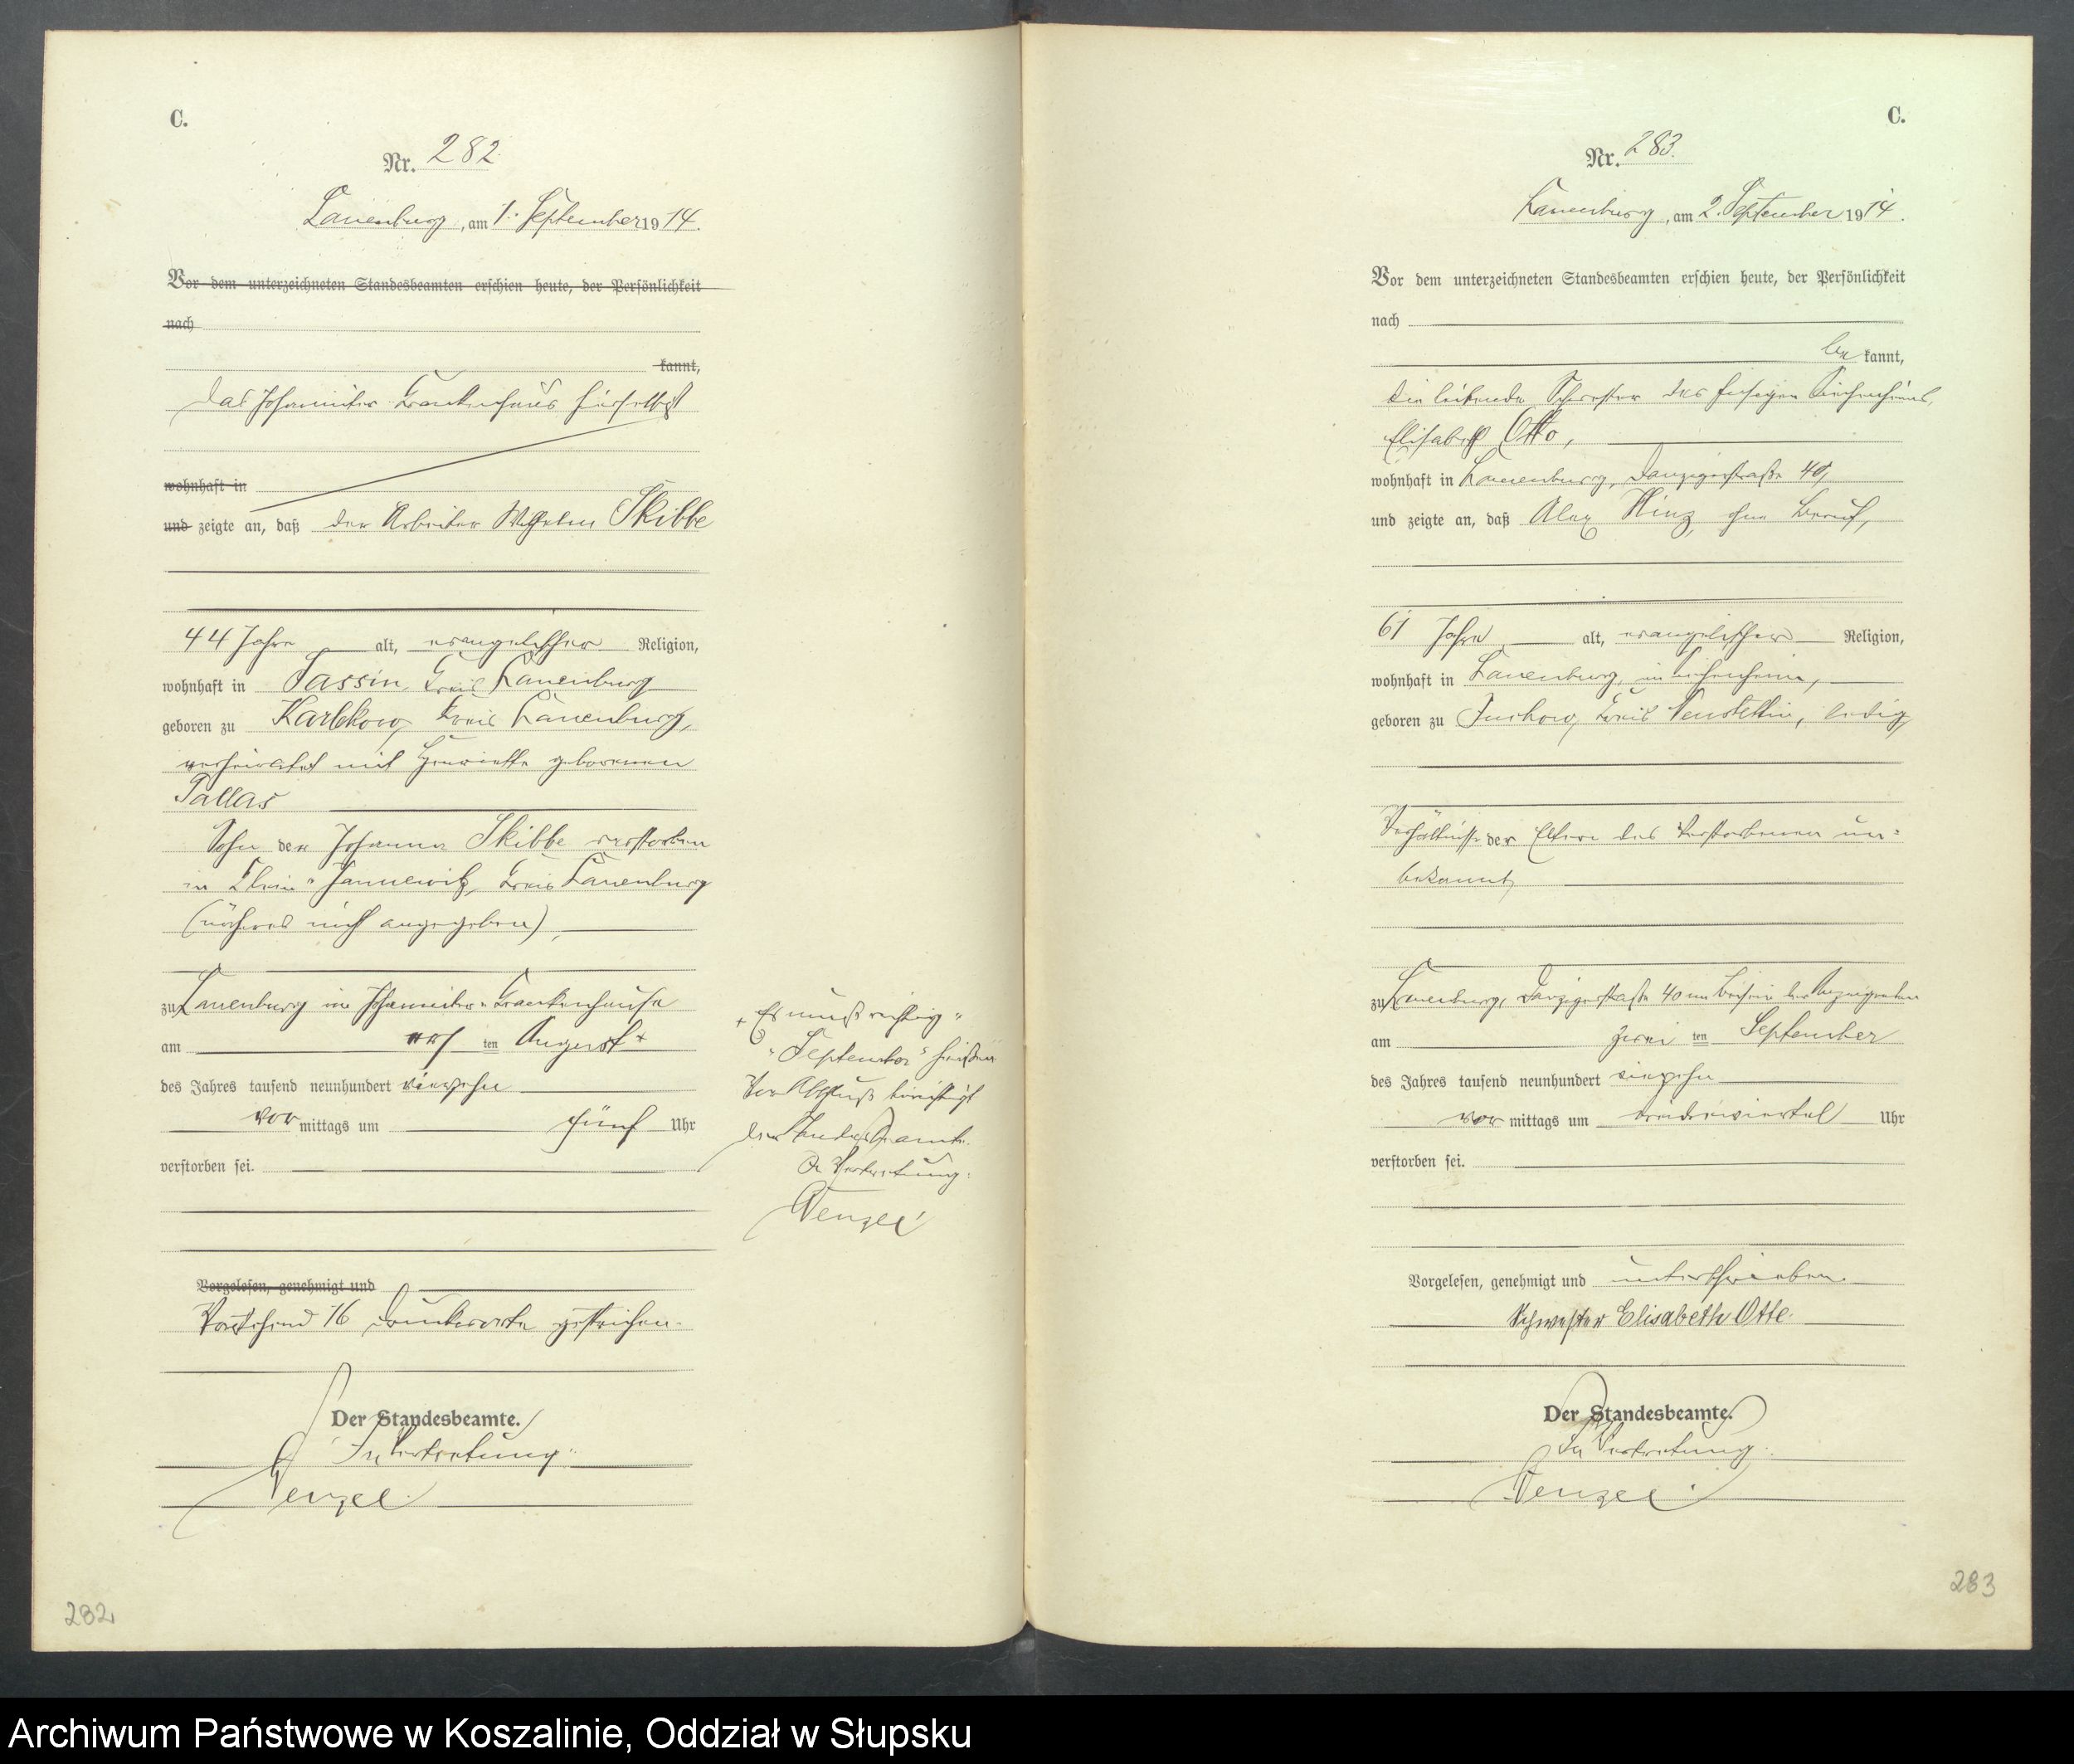 C.
Nr. 282
Lauenburg, am 1. September 1914.
Vor dem unterzeichneten Standesbeamten erschien heute, der Persönlichkeit
nach
kannt,
das Johanniter Krankenhaus hierselbst
wohnhaft in
und zeigte an, daß der Arbeiter Wilhelm Skibbe
44 Jahre alt, evangelischer Religion,
wohnhaft in Sassin, Kreis Lauenburg
geboren zu Karlekow, Kreis Lauenburg,
verheiratet mit Henriette geborenen
Pallas
Sohn der Johanna Skibbe verstorben
in Klein-Jannewitz, Kreis Lauenburg
(näheres nicht angegeben),
zu Lauenburg im Johanniter-Krankenhause
am ersten August +
des Jahres tausend neunhundert vierzehn
vormittags um fünf Uhr
verstorben sei.
+ Es muß richtig
"September" heißen
Vor Abschluß berichtigt
Der Standesbeamte.
In Vertretung:
Wenzel
Vorgelesen, genehmigt und
Vorstehend 16 Druckworte gestrichen.
Der Standesbeamte.
In Vertretung:
Wenzel
282
C.
Nr. 283.
Lauenburg, am 2. September 1914.
Vor dem unterzeichneten Standesbeamten erschien heute, der Persönlichkeit
nach
bekannt,
die leitende Schwester des hiesigen Siechenheims,
Elisabeth Otto,
wohnhaft in Lauenburg, Danzigerstraße 40,
und zeigte an, daß Alex Hinz, ohne Beruf,
61 Jahre alt, evangelischer Religion,
wohnhaft in Lauenburg, im Siechenheim,
geboren zu Juchow, Kreis Neustettin, ledig,
Verhältnisse der Eltern des Verstorbenen un-
bekannt,
zu Lauenburg, Danzigerstraße 40 im Beisein der Anzeigenden
am zweiten September
des Jahres tausend neunhundert vierzehn
vormittags um dreiviertel Uhr
verstorben sei.
Vorgelesen, genehmigt und unterschrieben.
Schwester Elisabeth Otte.
Der Standesbeamte.
In Vertretung:
Wenzel.
283
Archiwum Państwowe w Koszalinie, Oddział w Słupsku